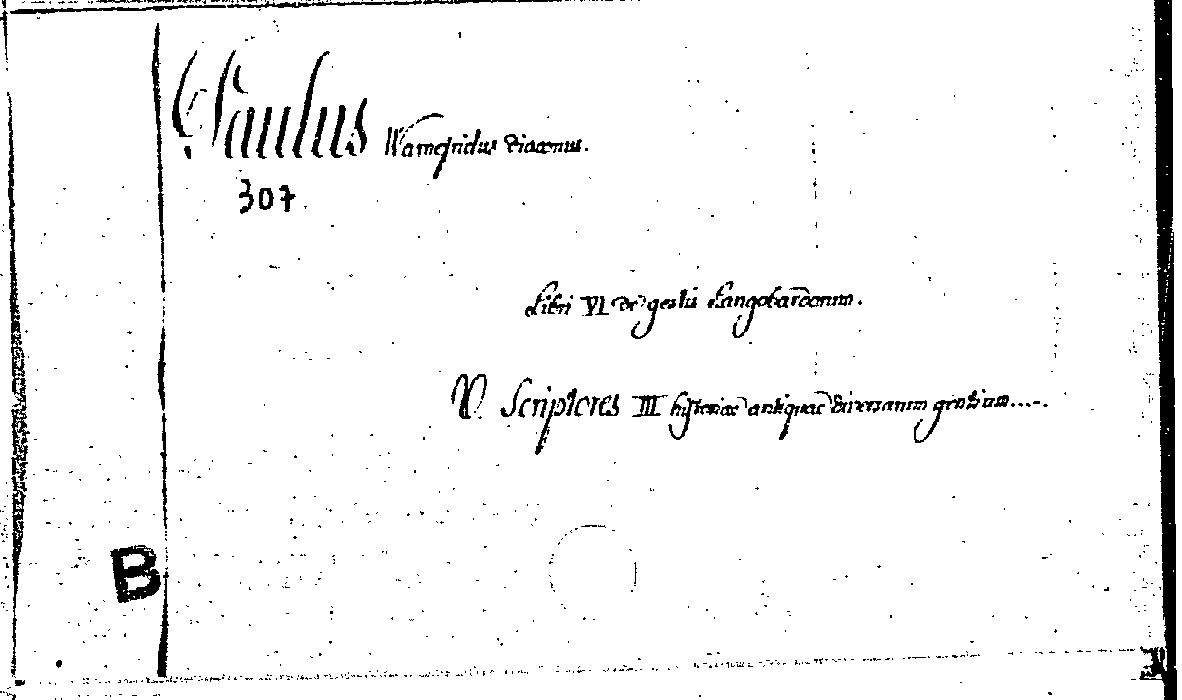 Paulus Warnefridus diaconus.
307.
Libri VI de gestis Langobardorum.
V. Scriptores III historiae antiquae diversarum gentium.....
B